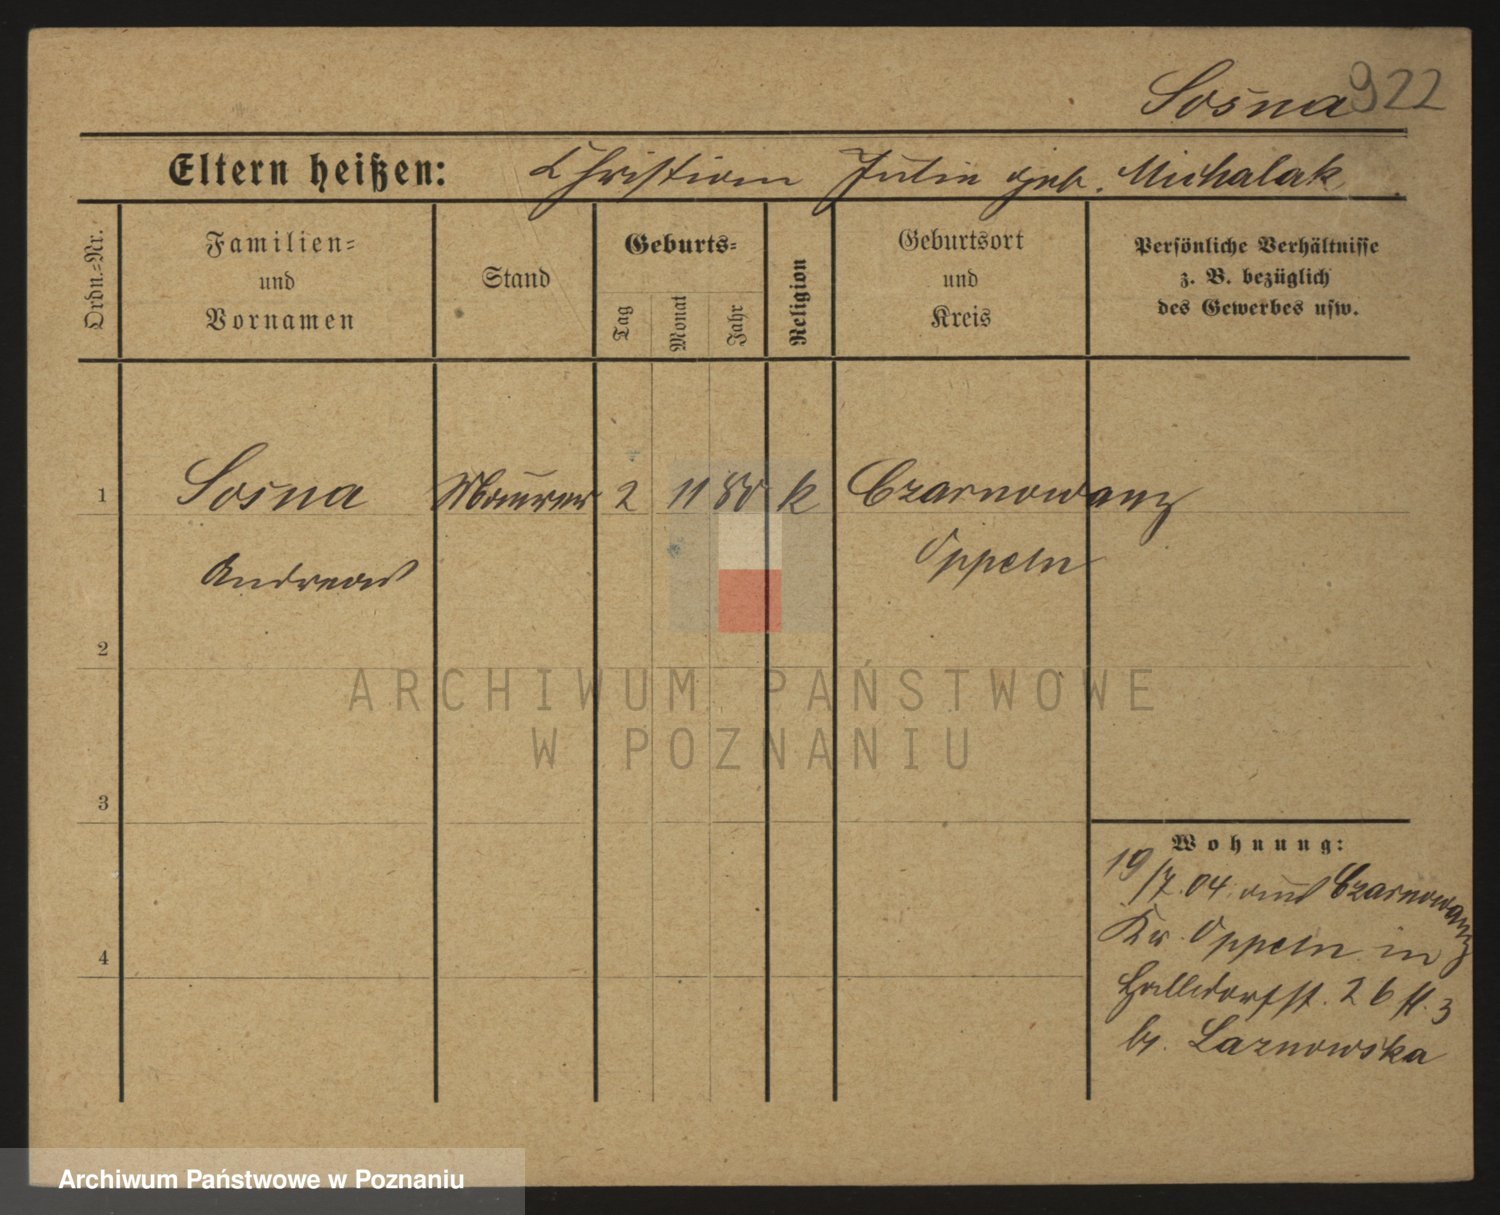 Sosna 922
Eltern heißen: Christian Julie geb. Michalak
Ordn.=Nr.
Familien=
und
Vornamen
Stand
Geburts=
Tag
Monat
Jahr
Religion
Geburtsort
und
Kreis
Persönliche Verhältnisse
z. B. bezüglich
des Gewerbes usw.
1 Sosna Maurer 2 11 80 k Czarnowanz
Andreas Oppeln
2
3
4
Wohnung:
19/7.04. aus Czarnowanz
Kr. Oppeln in
26 3
b. Laznowska
ARCHIWUM PAŃSTWOWE
W POZNANIU
Archiwum Państwowe w Poznaniu